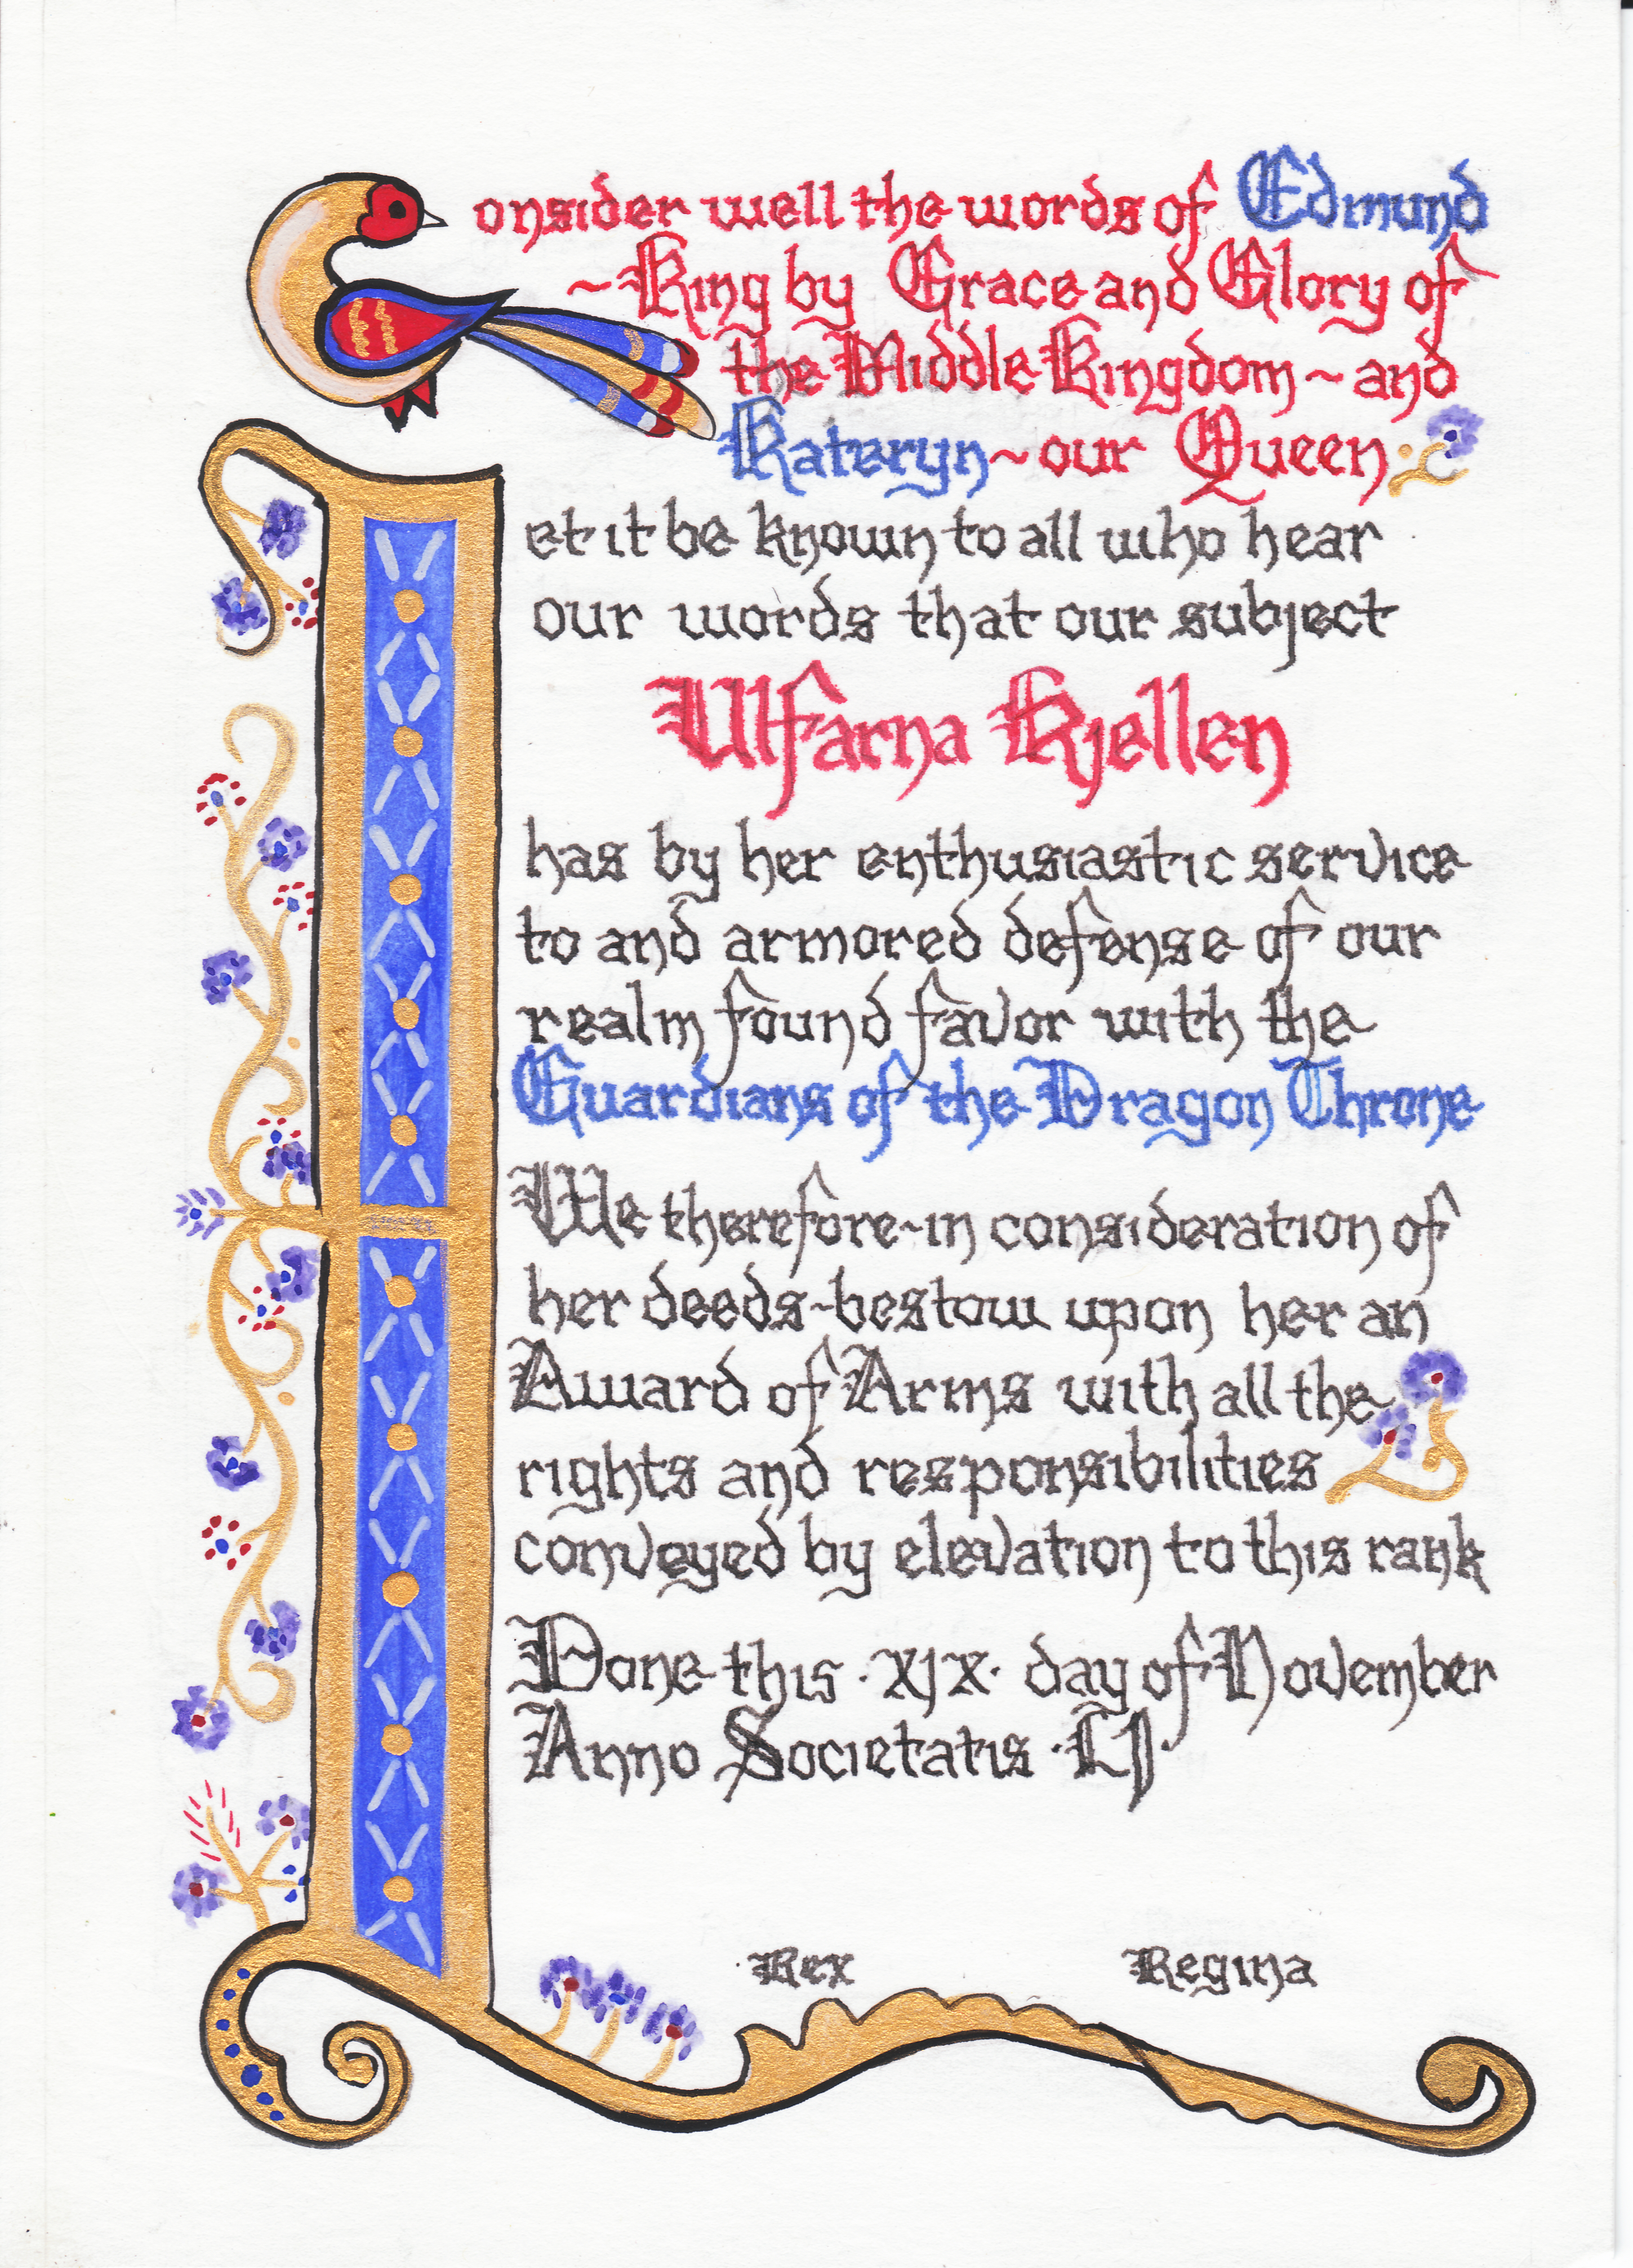 Consider well the words of Edmund
~King by Grace and Glory of
the Middle Kingdom~and
Kateryn~our Queen
Let it be known to all who hear
our words that our subject
Ulfarna Kjellen
has by her enthusiastic service
to and armored defense of our
realm found favor with the
Guardians of the Dragon Throne
We therefore~in consideration of
her deeds~bestow upon her an
Award of Arms with all the
rights and responsibilities
conveyed by elevation to this rank
Done this ·xjx· day of November
Anno Societatis ·LJ·
Rex Regina